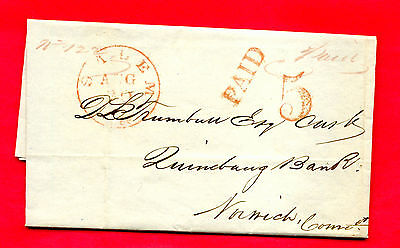 SALEM
AUG
PAID
5
Paid
D L Trumbull Esq Cash
Quinebaug Bank
Norwich, Connt